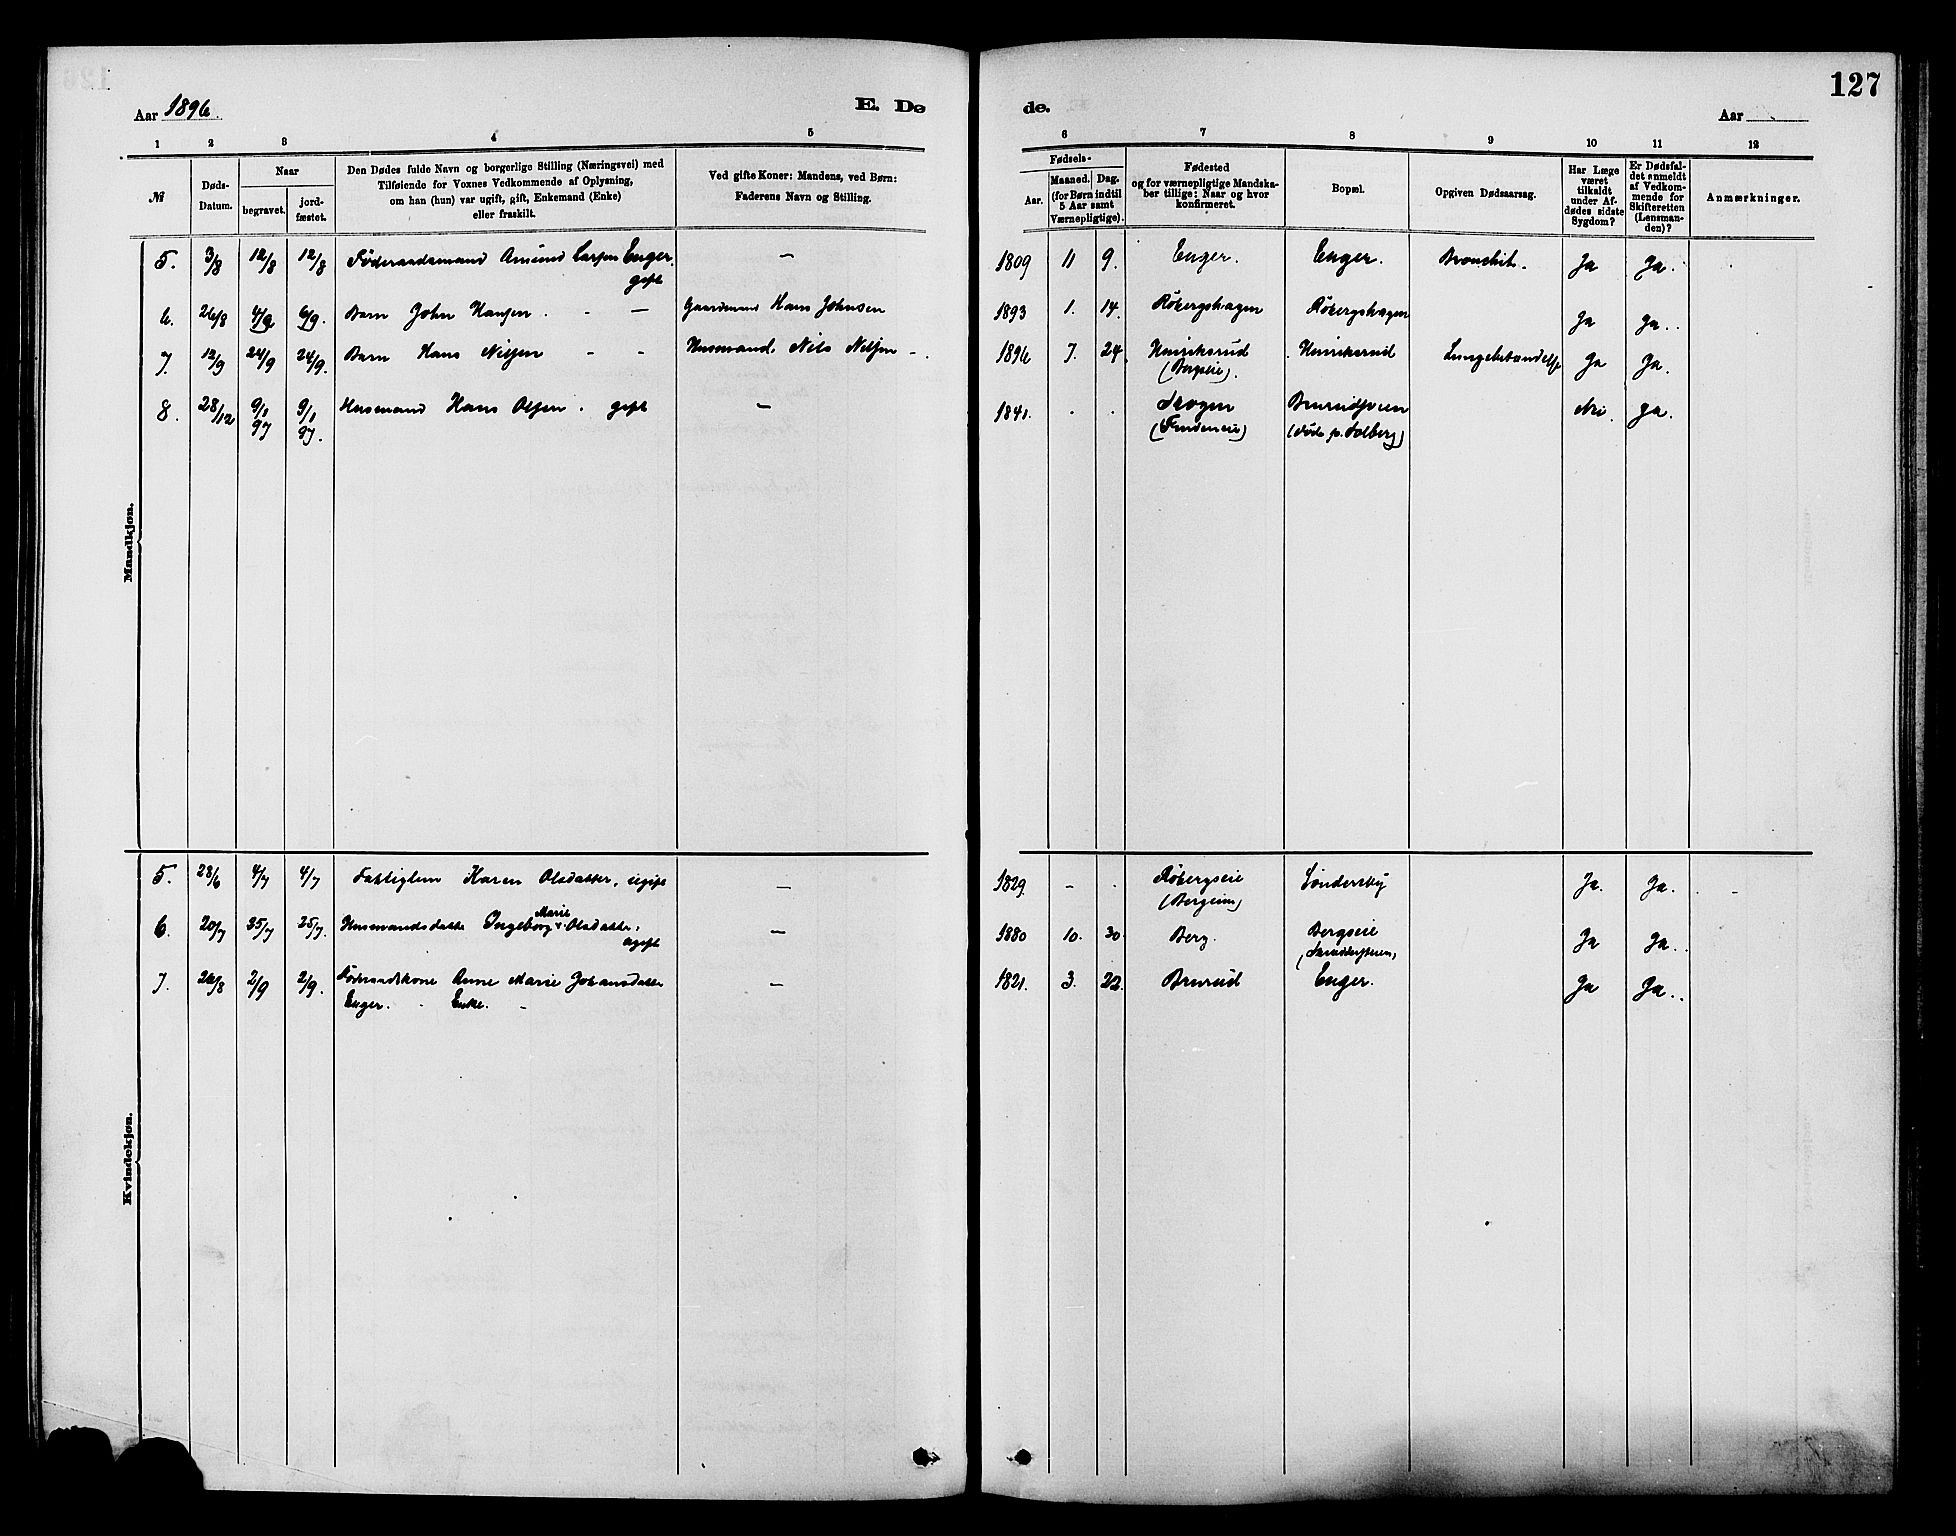 127
Aar 1896.
E. Dø
de.
Aar
1 2 3 4 5
6 7 8 9 10 11 12
№
Døds-
Datum.
Naar
begravet.
jord-
fæstet.
Den Dødes fulde Navn og borgerlige Stilling (Næringsvei) med
Tilføiende for Voxnes Vedkommende af Oplysning,
om han (hun) var ugift, gift, Enkemand (Enke)
eller fraskilt.
Ved gifte Koner: Mandens, ved Børn:
Faderens Navn og Stilling.
Fødsels-
Aar.
Maaned. Dag.
(for Børn indtil
5 Aar samt
Værnepligtige).
Fødested
og for værnepligtige Mandska-
ber tillige: Naar og hvor
konfirmeret.
Bopæl.
Opgiven Dødsaarsag.
Har Læge
været
tilkaldt
under Af-
dødes sidste
Sygdom?
Er Dødsfal-
det anmeldt
af Vedkom-
mende for
Skifteretten
(Lensman-
den)?
Anmærkninger.
Mandkjøn.
5. 3/8 12/8 12/8 Føderaadsmand Amund Larsen Enger. — 1809 11 9. Enger. Enger. Bronchit. Ja Ja.
gift
6. 26/8 4/9 6/9. Barn John Hansen. - — Gaardmand Hans Johnsen 1893 1. 14. Røbergshagen Røbergshagen Ja Ja..
7. 12/9 24/9 24/9. Barn Hans Nilsen - - Husmand. Nils Nilsen -. 1896 7. 24. Henriksrud Henriksrud Lungebetændelse Ja Ja.
(Bergseie).
8. 28/12 9/1 97 9/1 97. Husmand Hans Olsen. gift — 1841. . . Skogen Ja.
(død p. Solberg)
Kvindekjøn.
5. 28/6 4/7 4/7 Fattiglem Karen Olsdatter, ugift — 1829. - . Røbergseie Søndersky Ja. Ja. -
6. 20/7 25/7 25/7. Husmandsdatter Ingeborg Marie Olsdatter, — 1880 10. 30. Berg. Bergseie Ja Ja..
ugift
7. 26/8 2/9 2/9. Føderaadskone Anne Marie Johansdatter — 1821. 3. 22. Bruruid Enger. Ja Ja..
Enger. - Enke. -